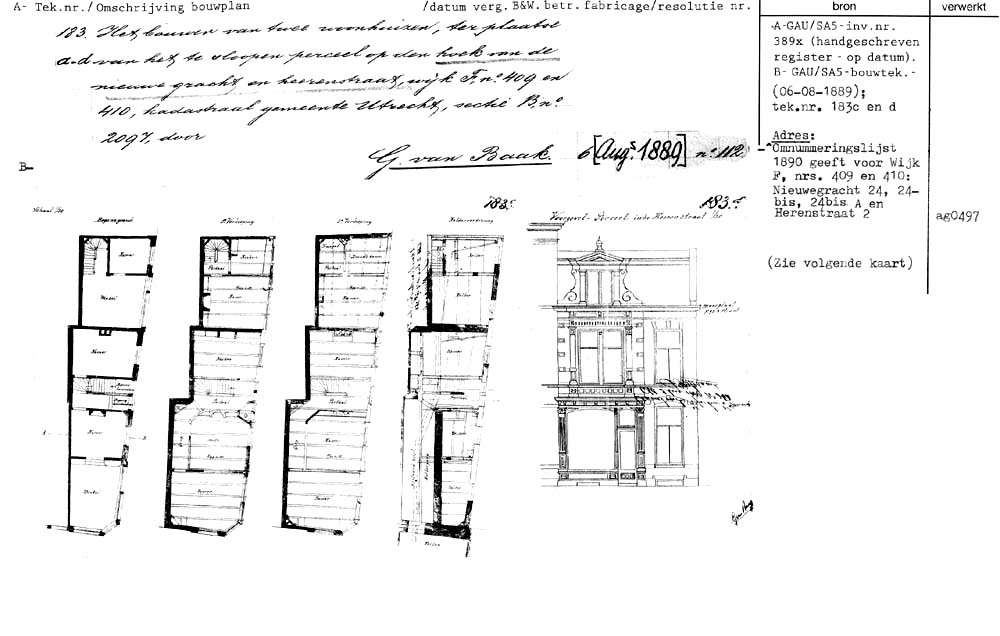 A- Tek.nr./Omschrijving bouwplan /datum verg. B&W. betr. fabricage/resolutie nr. bron verwerkt
183. Het bouwen van twee woonhuizen, ter plaatse
a-d van het te sloopen perceel op den hoek van de
nieuwe gracht en heerenstraat, wijk F, no 409 en
410, kadastraal gemeente Utrecht, sectie B, no
2097, door
G. van Baak. 6 [Augs 1889] no 112.
A-GAU/SA5-inv.nr.
389x (handgeschreven
register - op datum).
B- GAU/SA5-bouwtek.-
(06-08-1889);
tek.nr. 183c en d
Adres:
Omnummeringslijst
1890 geeft voor Wijk
F, nrs. 409 en 410:
Nieuwegracht 24, 24-
bis, 24bis A en
Herenstraat 2
ag0497
(Zie volgende kaart)
B-
183.c
183.d
Schaal 1/50
1e Verdieping
2e Verdieping
Voorgevel - Perceel in de Heerenstraat 1/50
Kamer
Winkel
Kamer
Kamer
Winkel
Keuken
Portaal
Kamer
Kamer
Portaal
Kamer
Portaal
Kamer
Portaal
Kamer
Kamer
Kelder